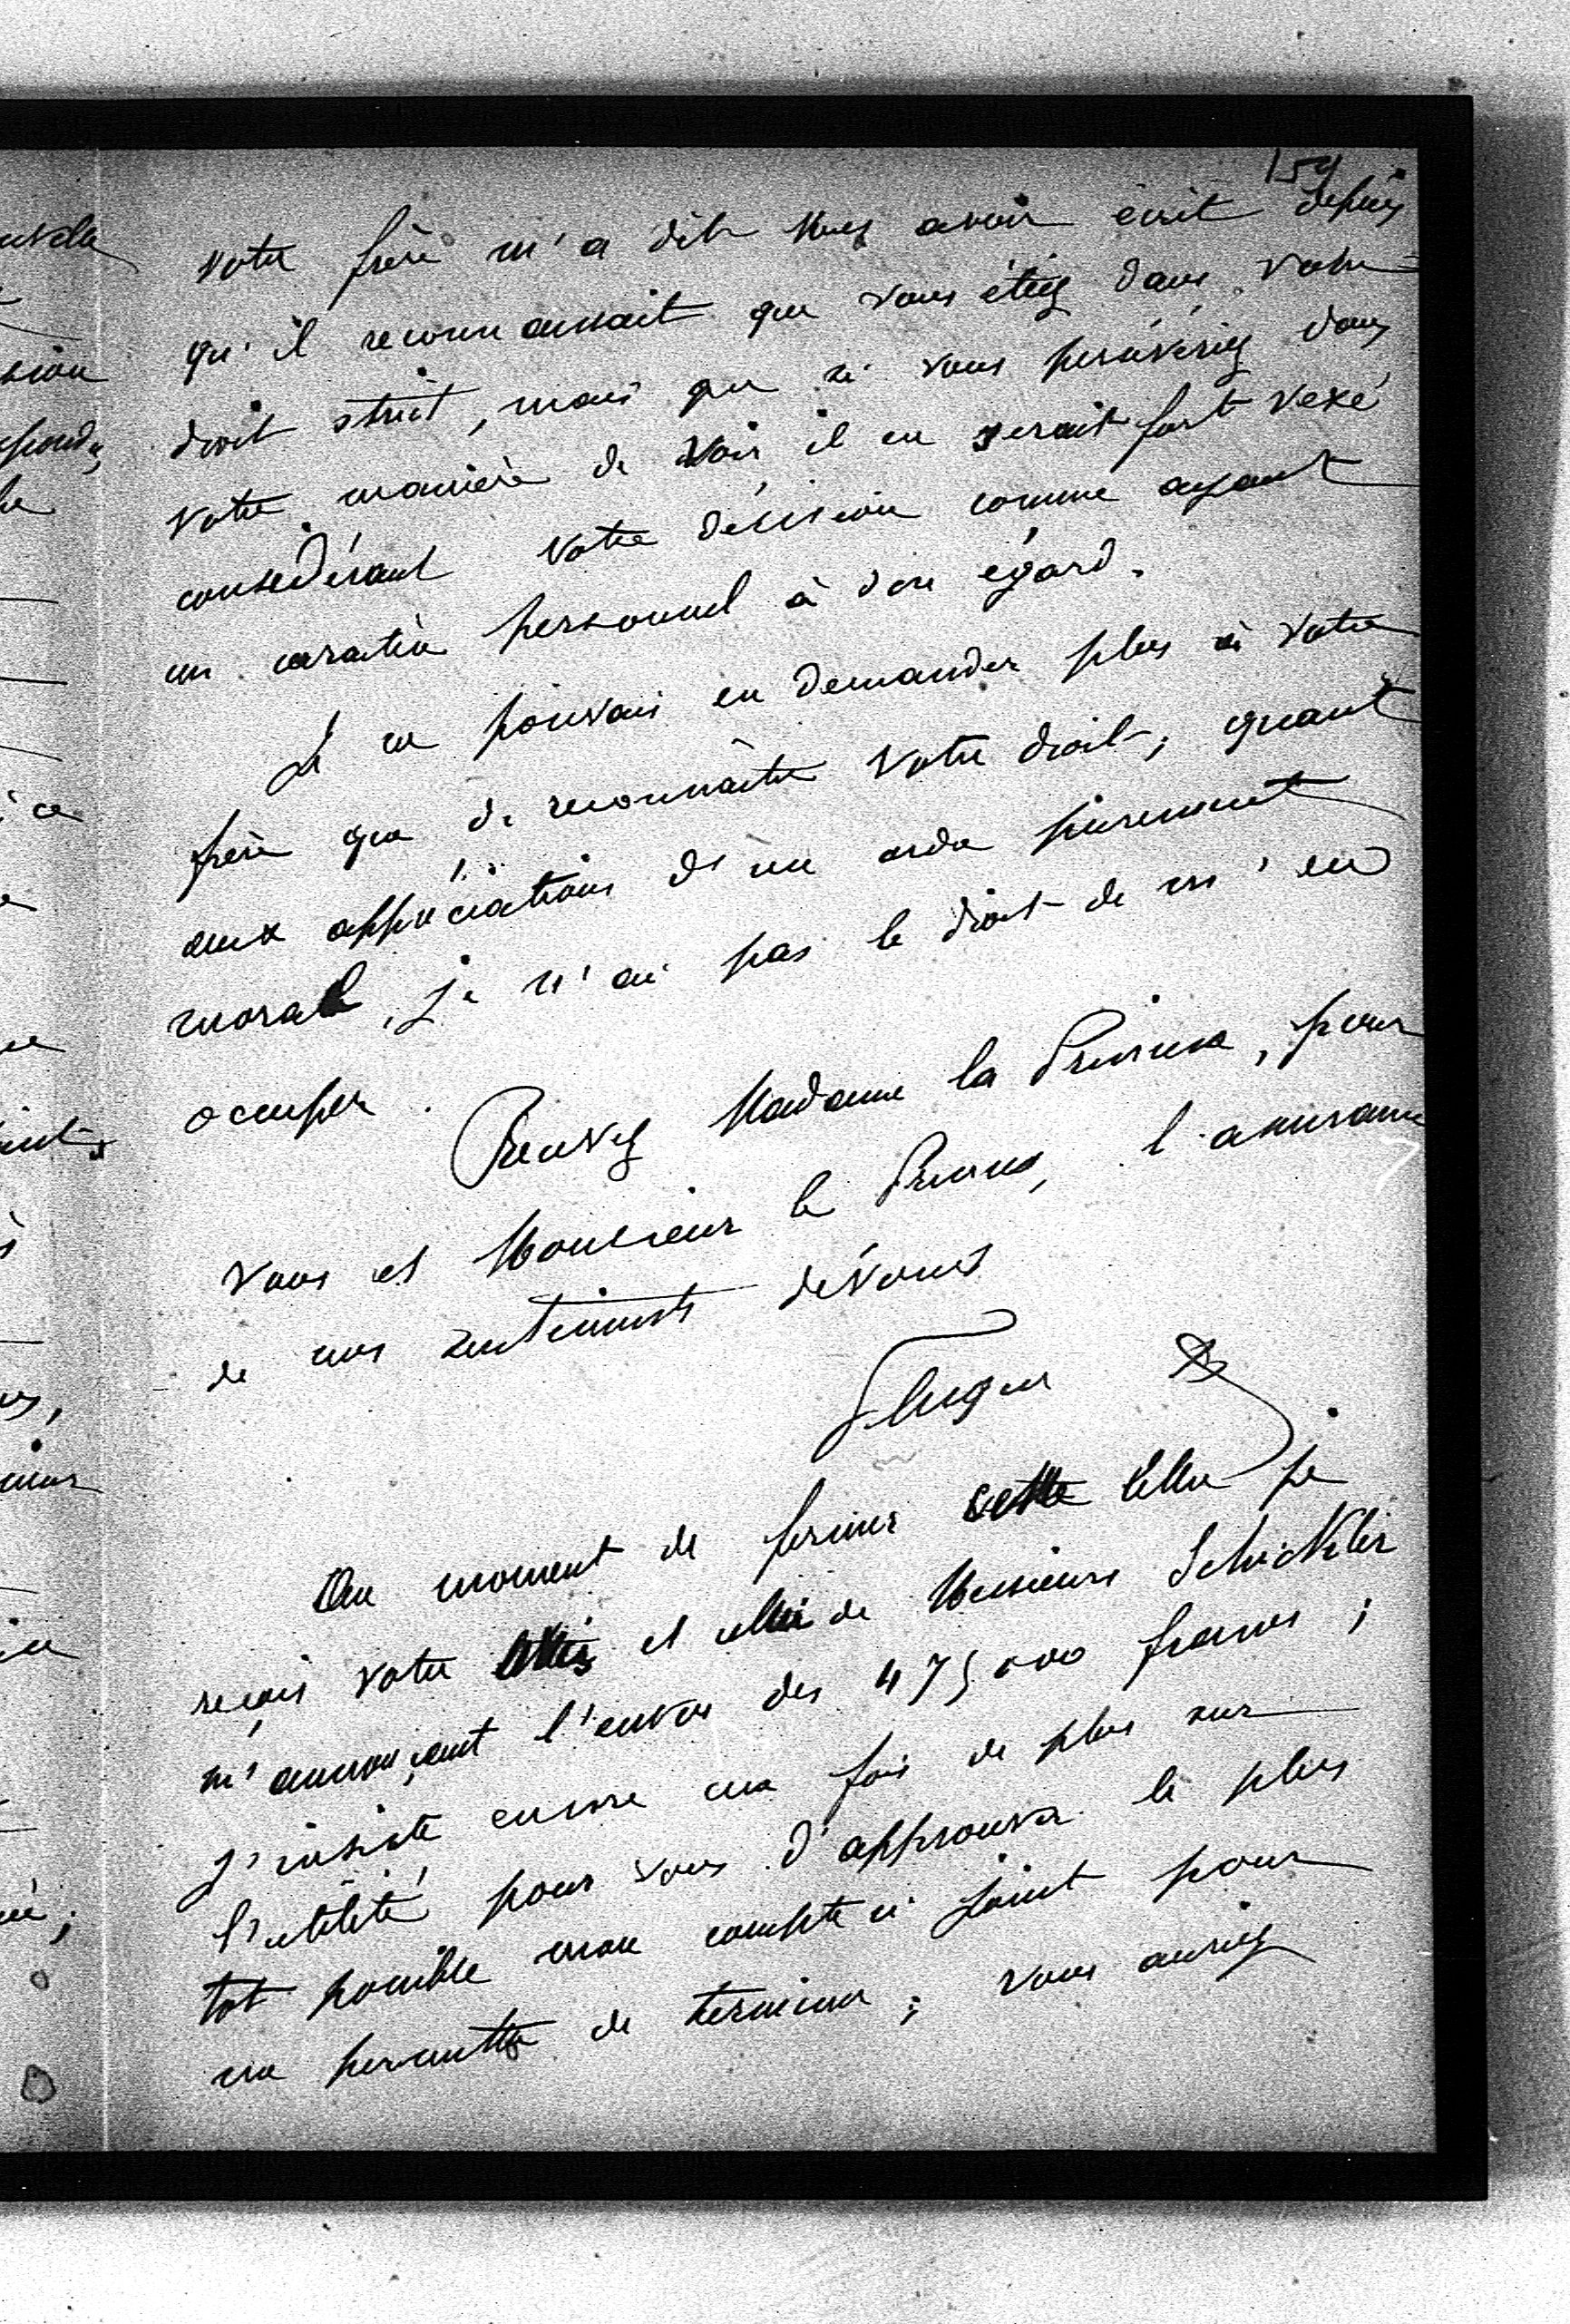 159
votre frère m'a dit vous avoir écrit depuis
qu'il reconnaissait que vous étiez dans votre
droit strict, mais que si vous persévériez dans
votre manière de voir, il en serait fort vexé
considérant votre décision comme ayant
un caractère personnel à son égard.
Je ne pouvais en demander plus à votre
frère que de reconnaître votre droit; quant
aux appréciations d'un ordre purement
moral, je n'ai pas le droit de m'en
occuper.
Recevez Madame la Princesse, pour
vous et Monsieur le Prince, l'assurance
de mes sentiments dévoués
Au moment de fermer cette lettre je
reçois votre lettre et celle de Messieurs Schickler
m'annonçant l'envoi des 475000 francs;
j'insiste encore une fois de plus sur
l'utilité pour vous d'approuver le plus
tot possible mon compte ci joint pour
me permettre de terminer; vous auriez